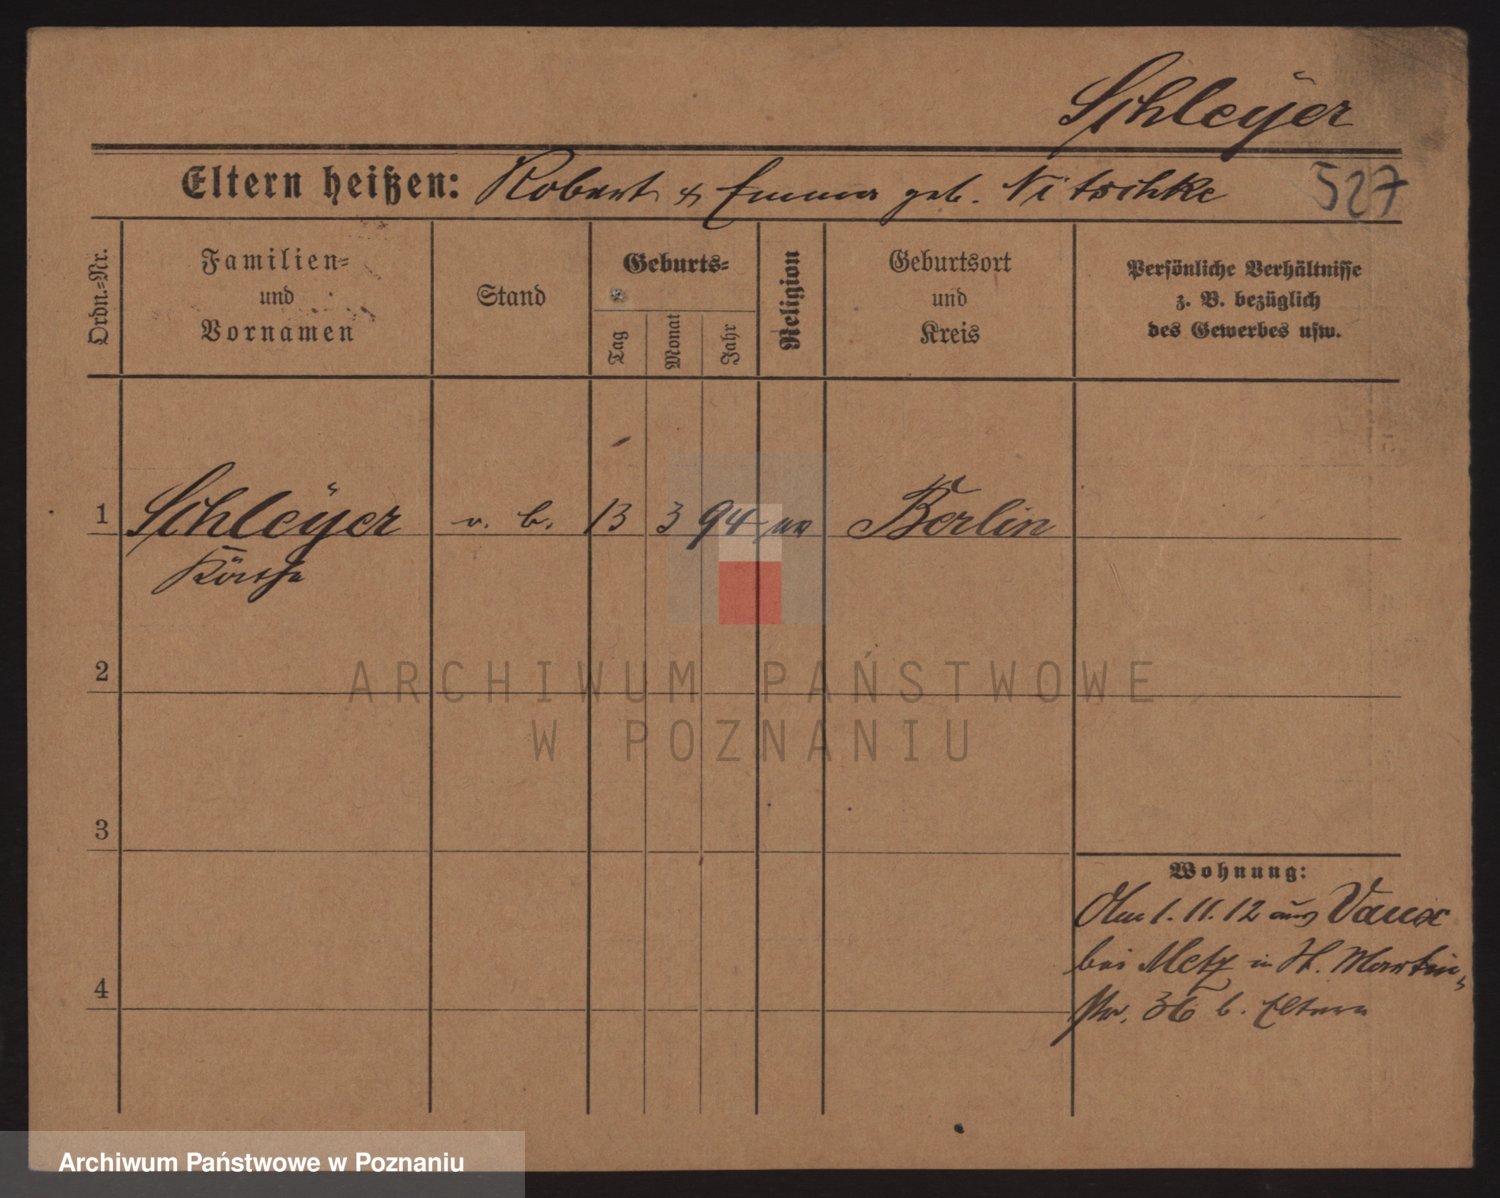 Schleÿer
Eltern heißen: Robert & Emma geb. Nitschke
527
Ordn.-Nr.
Familien-
und
Vornamen
Stand
Geburts-
Tag
Monat
Jahr
Religion
Geburtsort
und
Kreis
Persönliche Verhältnisse
z. B. bezüglich
des Gewerbes usw.
1 Schleÿer o. b. 13 3 94 Berlin
Käthe
2
ARCHIWUM PAŃSTWOWE
W POZNANIU
3
Wohnung:
Am 1. 11. 12 aus Vaux
bei Metz in St. Martin-
str. 36 b. Eltern
4
Archiwum Państwowe w Poznaniu